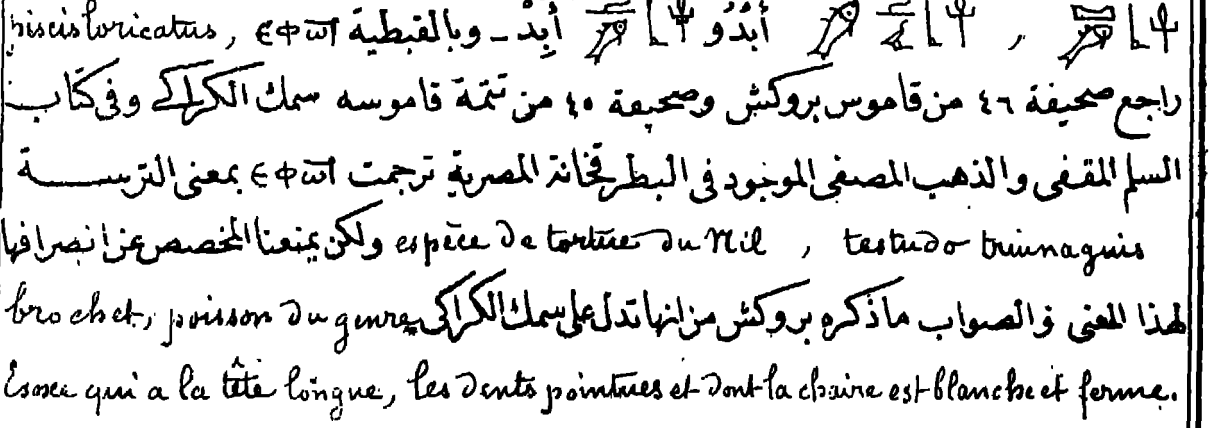 أَبْدُو أَبِدْ - وبالقبطية ⲉⲫⲱⲧ piscis loricatus,
راجع صحيفة ٤٦ من قاموس بروكش وصحيفة ٤٥ من تتمة قاموسه سمك الكراكى وفى كتاب
السلم المقفى والذهب المصفى الموجود فى البطرقخانة المصرية ترجمت ⲉⲫⲱⲧ بمعنى الترسة
espèce de tortue du Nil , testudo ولكن يمنعنا المخصص عن انصرافها
لهذا المعنى والصواب ماذكره بروكش من انها تدل على سمك الكراكى brochet, poisson du genre
qui a la tête longue, les dents pointues et dont la chaire est blanche et ferme.